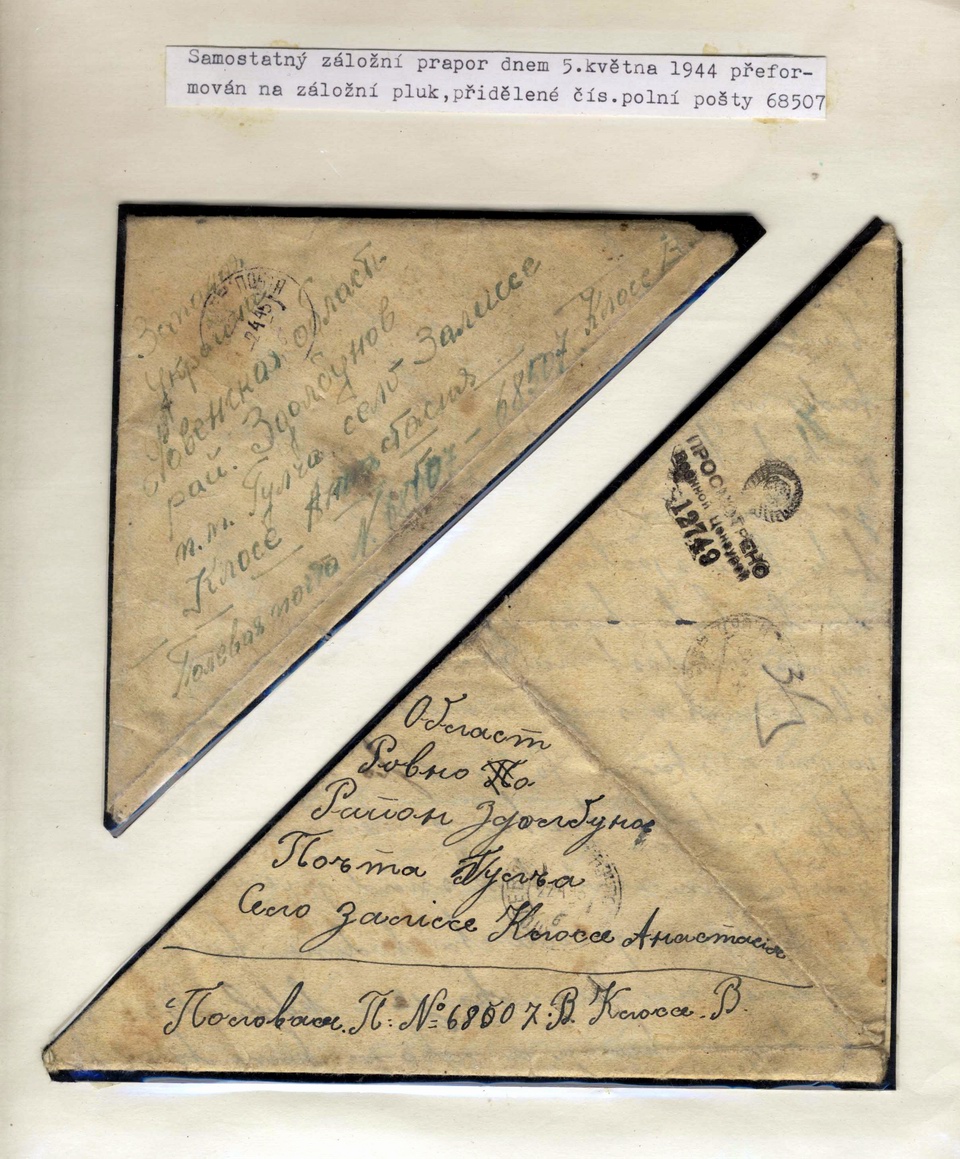 Samostatný záložní prapor dnem 5.května 1944 přefor-
mován na záložní pluk,přidělené čís.polní pošty 68507
область
рай. Здолбунов
п.м. Гулча село Залиссе
Клосе Анастасия
Полевая почта N. 68507 Клосе В.
ПРОСМОТРЕНО
Военной Цензурой
12749
Област
Ровно По
Район Здолбуно
Почта Гулча
Село Залиссе Клосе Анастасия
Половая. П: № 68507. В. Клосе. В.